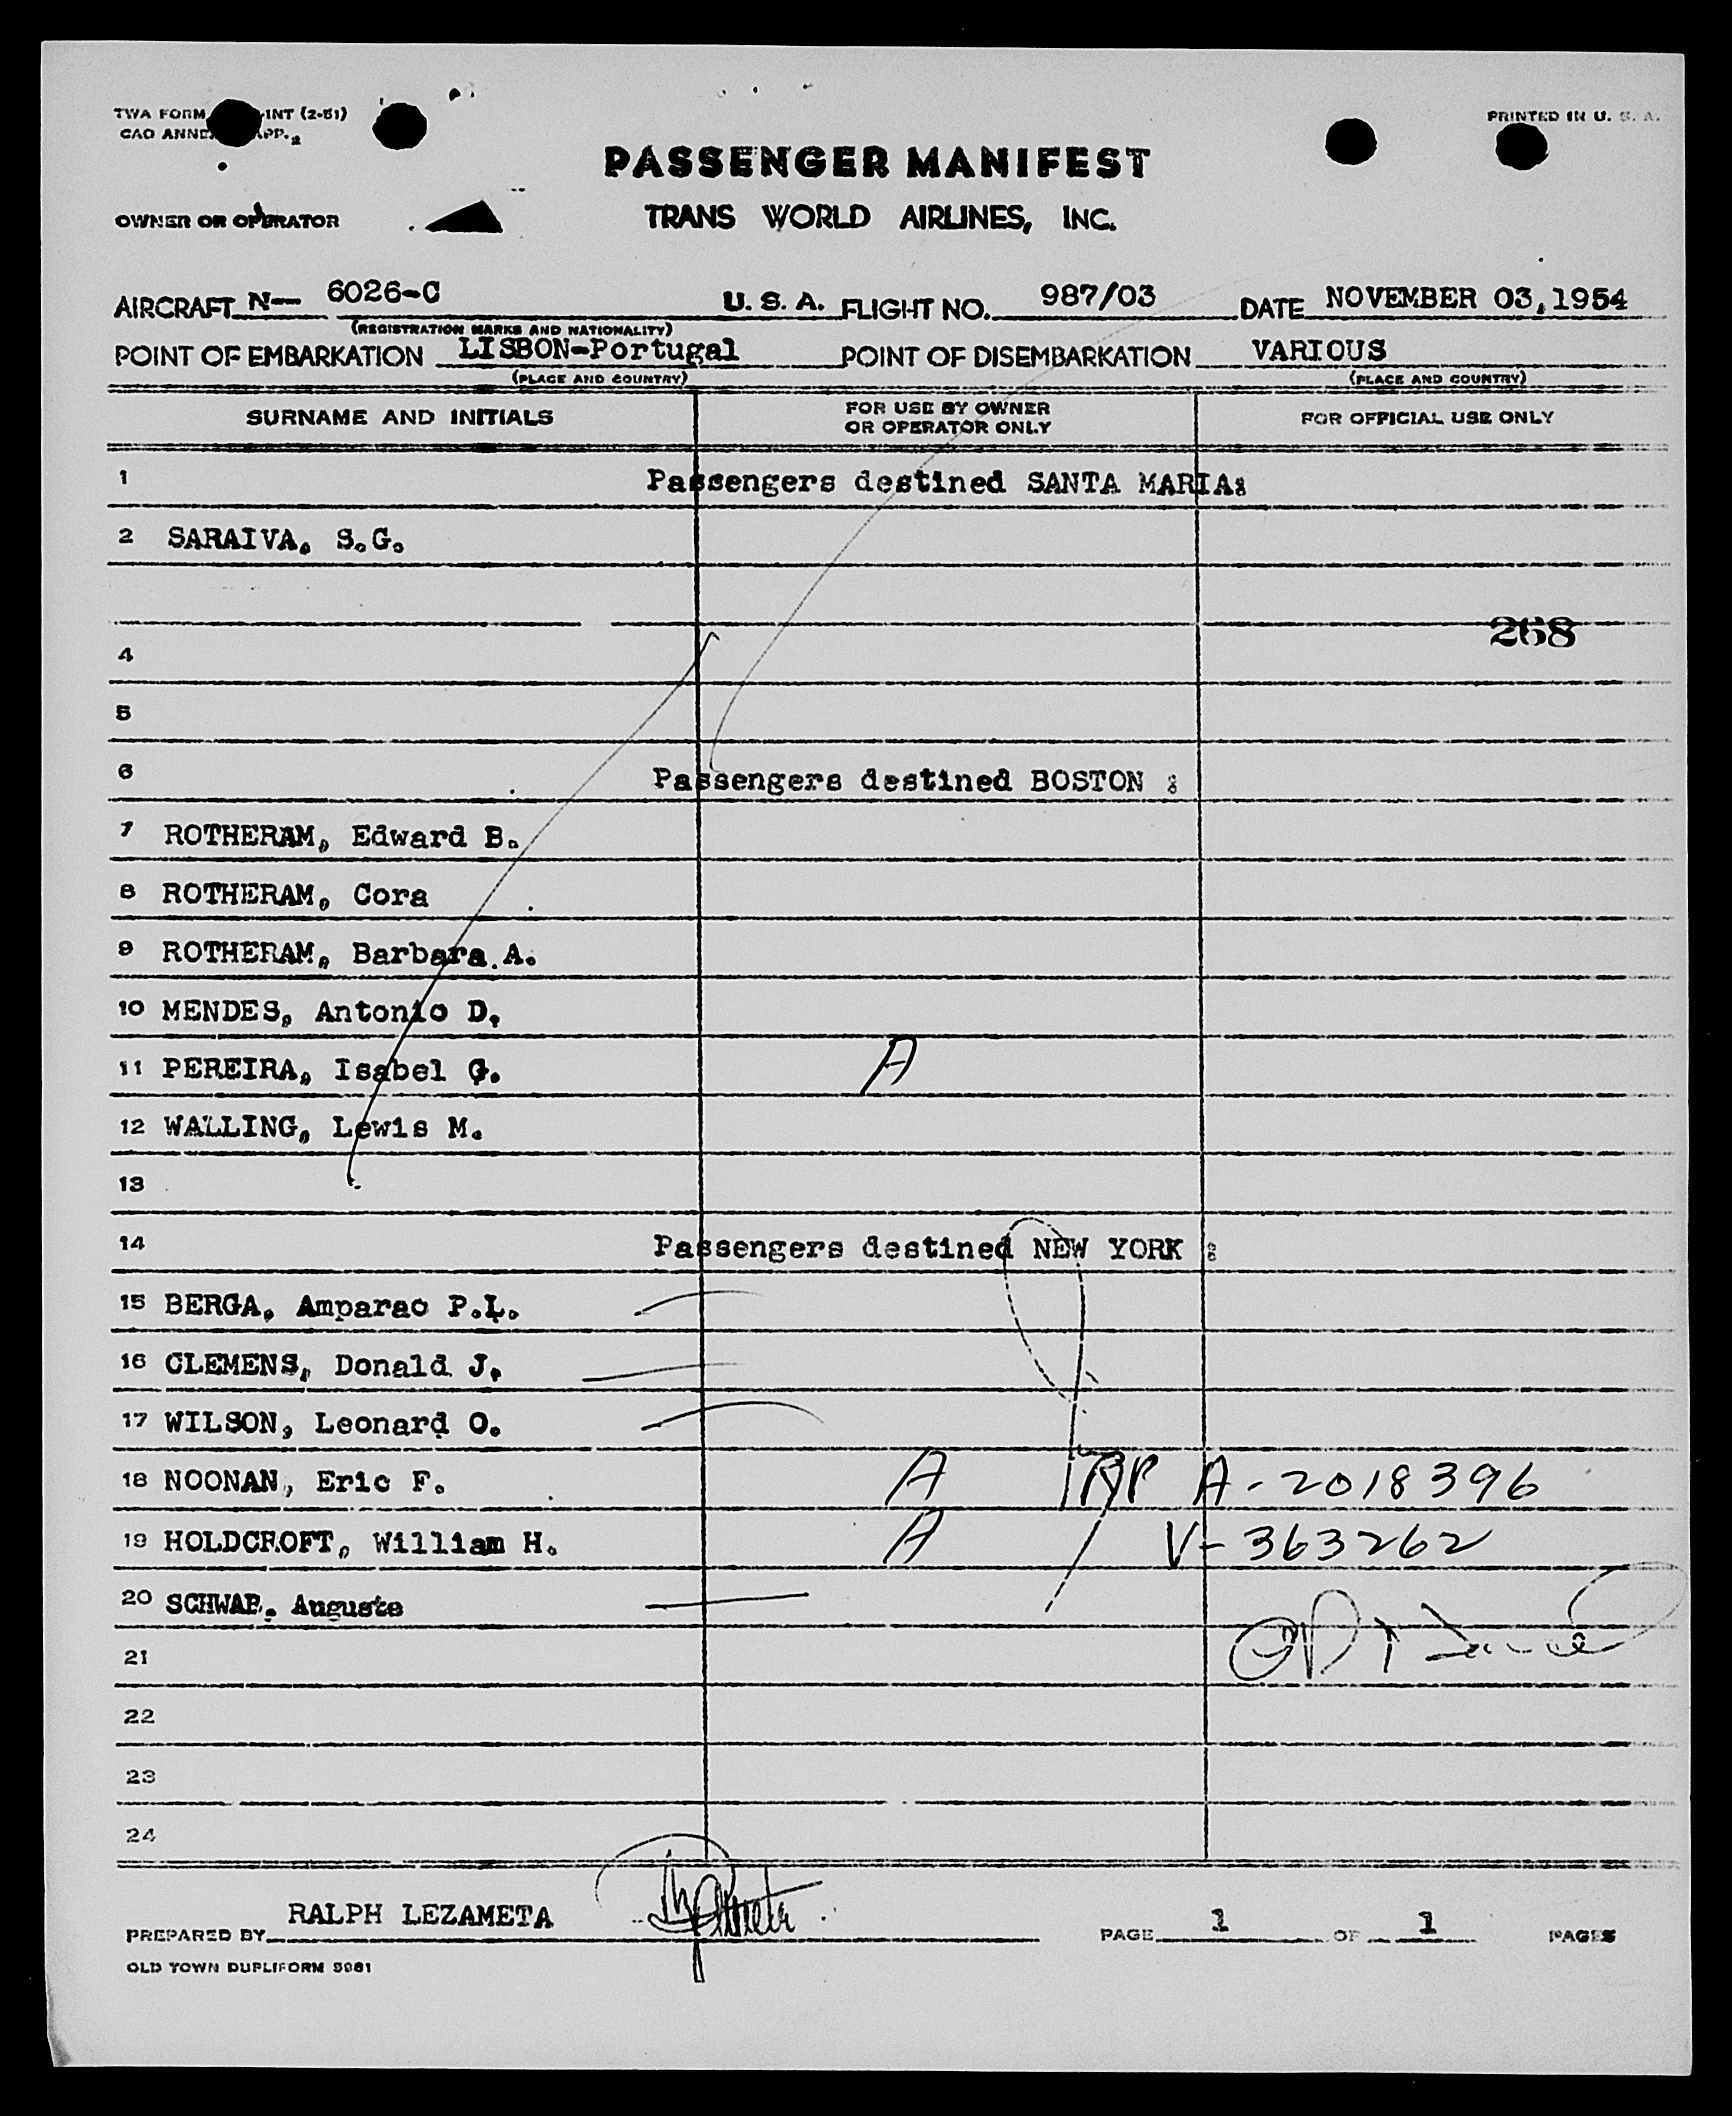 TWA FORM INT (2-51)
PRINTED IN U. S. A.
CAO ANNEX APP. 2
PASSENGER MANIFEST
OWNER OR OPERATOR
TRANS WORLD AIRLINES, INC.
AIRCRAFT N— 6026-C U. S. A. FLIGHT NO. 987/03 DATE NOVEMBER 03, 1954
(REGISTRATION MARKS AND NATIONALITY)
POINT OF EMBARKATION LISBON-Portugal POINT OF DISEMBARKATION VARIOUS
(PLACE AND COUNTRY) (PLACE AND COUNTRY)
SURNAME AND INITIALS FOR USE BY OWNER OR OPERATOR ONLY FOR OFFICIAL USE ONLY
1 Passengers destined SANTA MARIA:
2 SARAIVA, S.G.
268
4
5
6 Passengers destined BOSTON :
7 ROTHERAM, Edward B.
8 ROTHERAM, Cora
9 ROTHERAM, Barbara A.
10 MENDES, Antonio D.
11 PEREIRA, Isabel G. A
12 WALLING, Lewis M.
13
14 Passengers destined NEW YORK :
15 BERGA, Amparao P.L.
16 CLEMENS, Donald J.
17 WILSON, Leonard O.
18 NOONAN, Eric F. A A-2018396
19 HOLDCROFT, William H. A V-363262
20 SCHWAB, Auguste
21
22
23
24
PREPARED BY RALPH LEZAMETA PAGE 1 OF 1 PAGES
OLD TOWN DUPLIFORM 5981